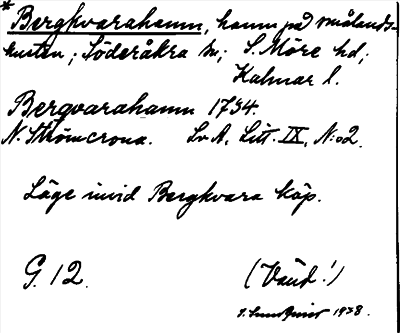 * Bergkvarahamn, hamn på smålands-
kusten; Söderåkra sn; S. Möre hd;
Kalmar l.
Bergvarahamn 1734.
N. Strömcrona. Sv A, Litt. IX, N:o 2.
Läge invid Bergkvara köp.
G. 12. (Vaud!)
1938.